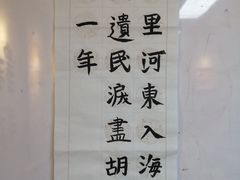 里河東入海
遺民淚盡胡
一年